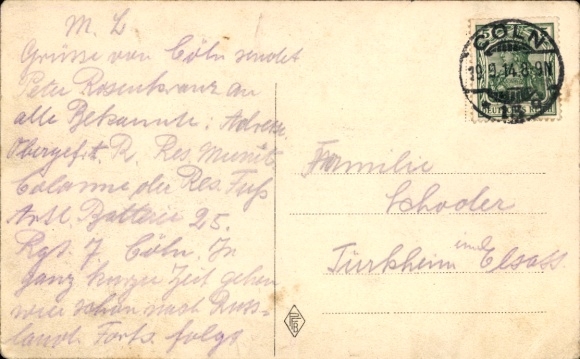 M. L
Grüsse von Cöln sendet
Peter Rosenkranz an
alle Bekannte: Adresse
Obergefrt. R. Res. Munit
Colanne der Res. Fuß
Artl. Batterie 25.
Rgt. 7. Cöln. In
ganz kurze Zeit gehen
wir schon nach Russ-
land. Forts. folgt
CÖLN
14.8-9N
DEUTSCHES REICH
Familie
Schoder
Türkheim im Elsass.